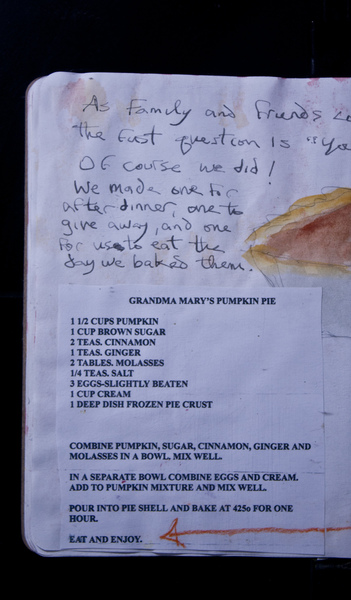 As Family and Friends
the first question is "Yo
Of course we did!
We made one for
after dinner, one to
give away, and one
for us to eat the
day we baked them.
GRANDMA MARY'S PUMPKIN PIE
1 1/2 CUPS PUMPKIN
1 CUP BROWN SUGAR
2 TEAS. CINNAMON
1 TEAS. GINGER
2 TABLES. MOLASSES
1/4 TEAS. SALT
3 EGGS-SLIGHTLY BEATEN
1 CUP CREAM
1 DEEP DISH FROZEN PIE CRUST
COMBINE PUMPKIN, SUGAR, CINNAMON, GINGER AND
MOLASSES IN A BOWL. MIX WELL.
IN A SEPARATE BOWL COMBINE EGGS AND CREAM.
ADD TO PUMPKIN MIXTURE AND MIX WELL.
POUR INTO PIE SHELL AND BAKE AT 425o FOR ONE
HOUR.
EAT AND ENJOY.